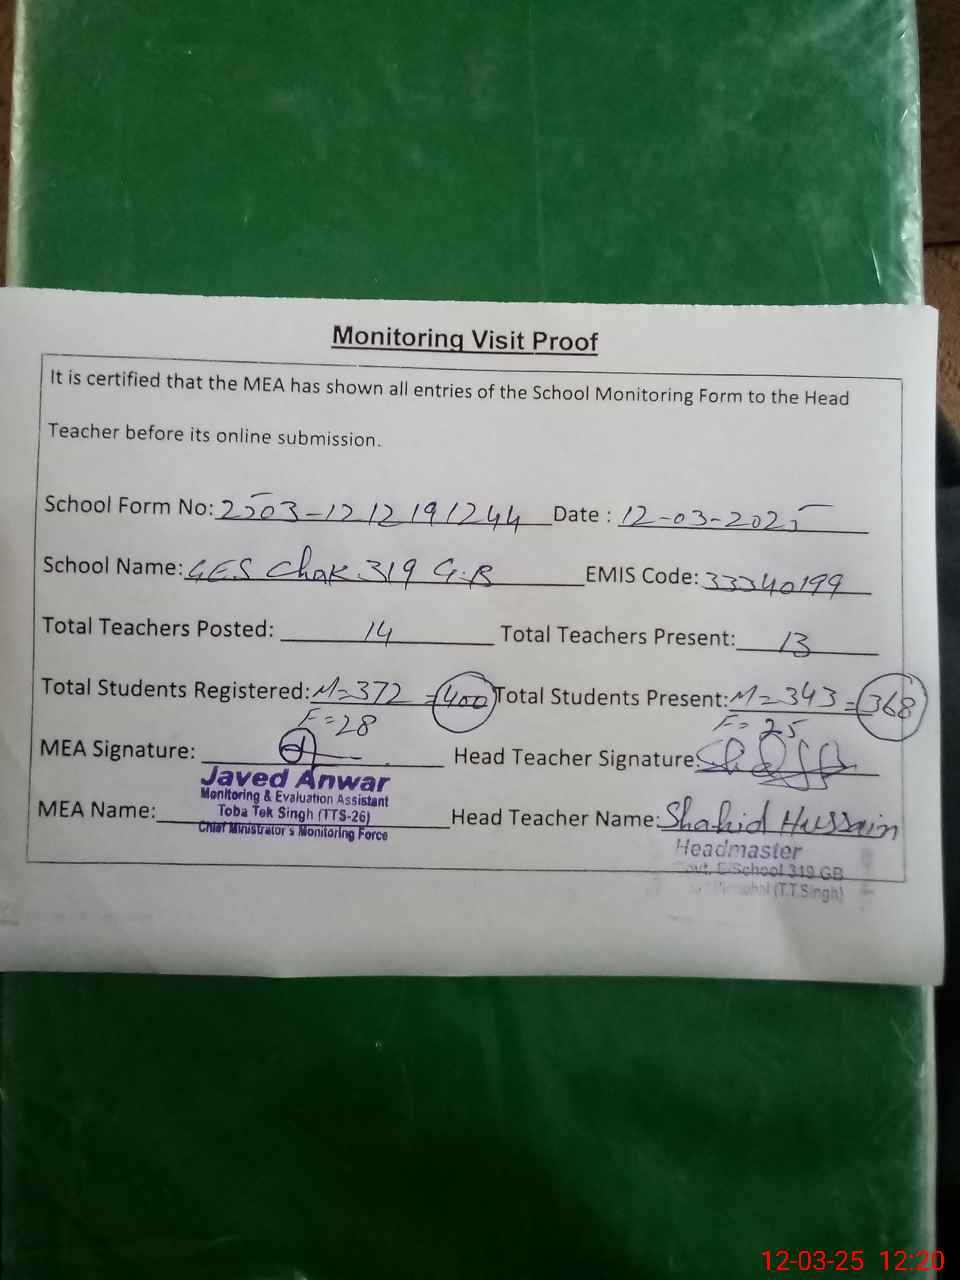 Monitoring Visit Proof
It is certified that the MEA has shown all entries of the School Monitoring Form to the Head
Teacher before its online submission.
School Form No: 2503-1212191244 Date : 12-03-2025
School Name: GES Chak 319 G.B EMIS Code: 33340199
Total Teachers Posted: 14 Total Teachers Present: 13
Total Students Registered: M=372 =400 Total Students Present: M=343=368
F=28 F=25
MEA Signature: Head Teacher Signature:
Javed Anwar
Monitoring & Evaluation Assistant
Toba Tek Singh (TTS-26)
Chief Minister's Monitoring Force
MEA Name: Head Teacher Name: Shahid Hussain
Headmaster
E/School 319 GB
(T.T.Singh)
12-03-25 12:20